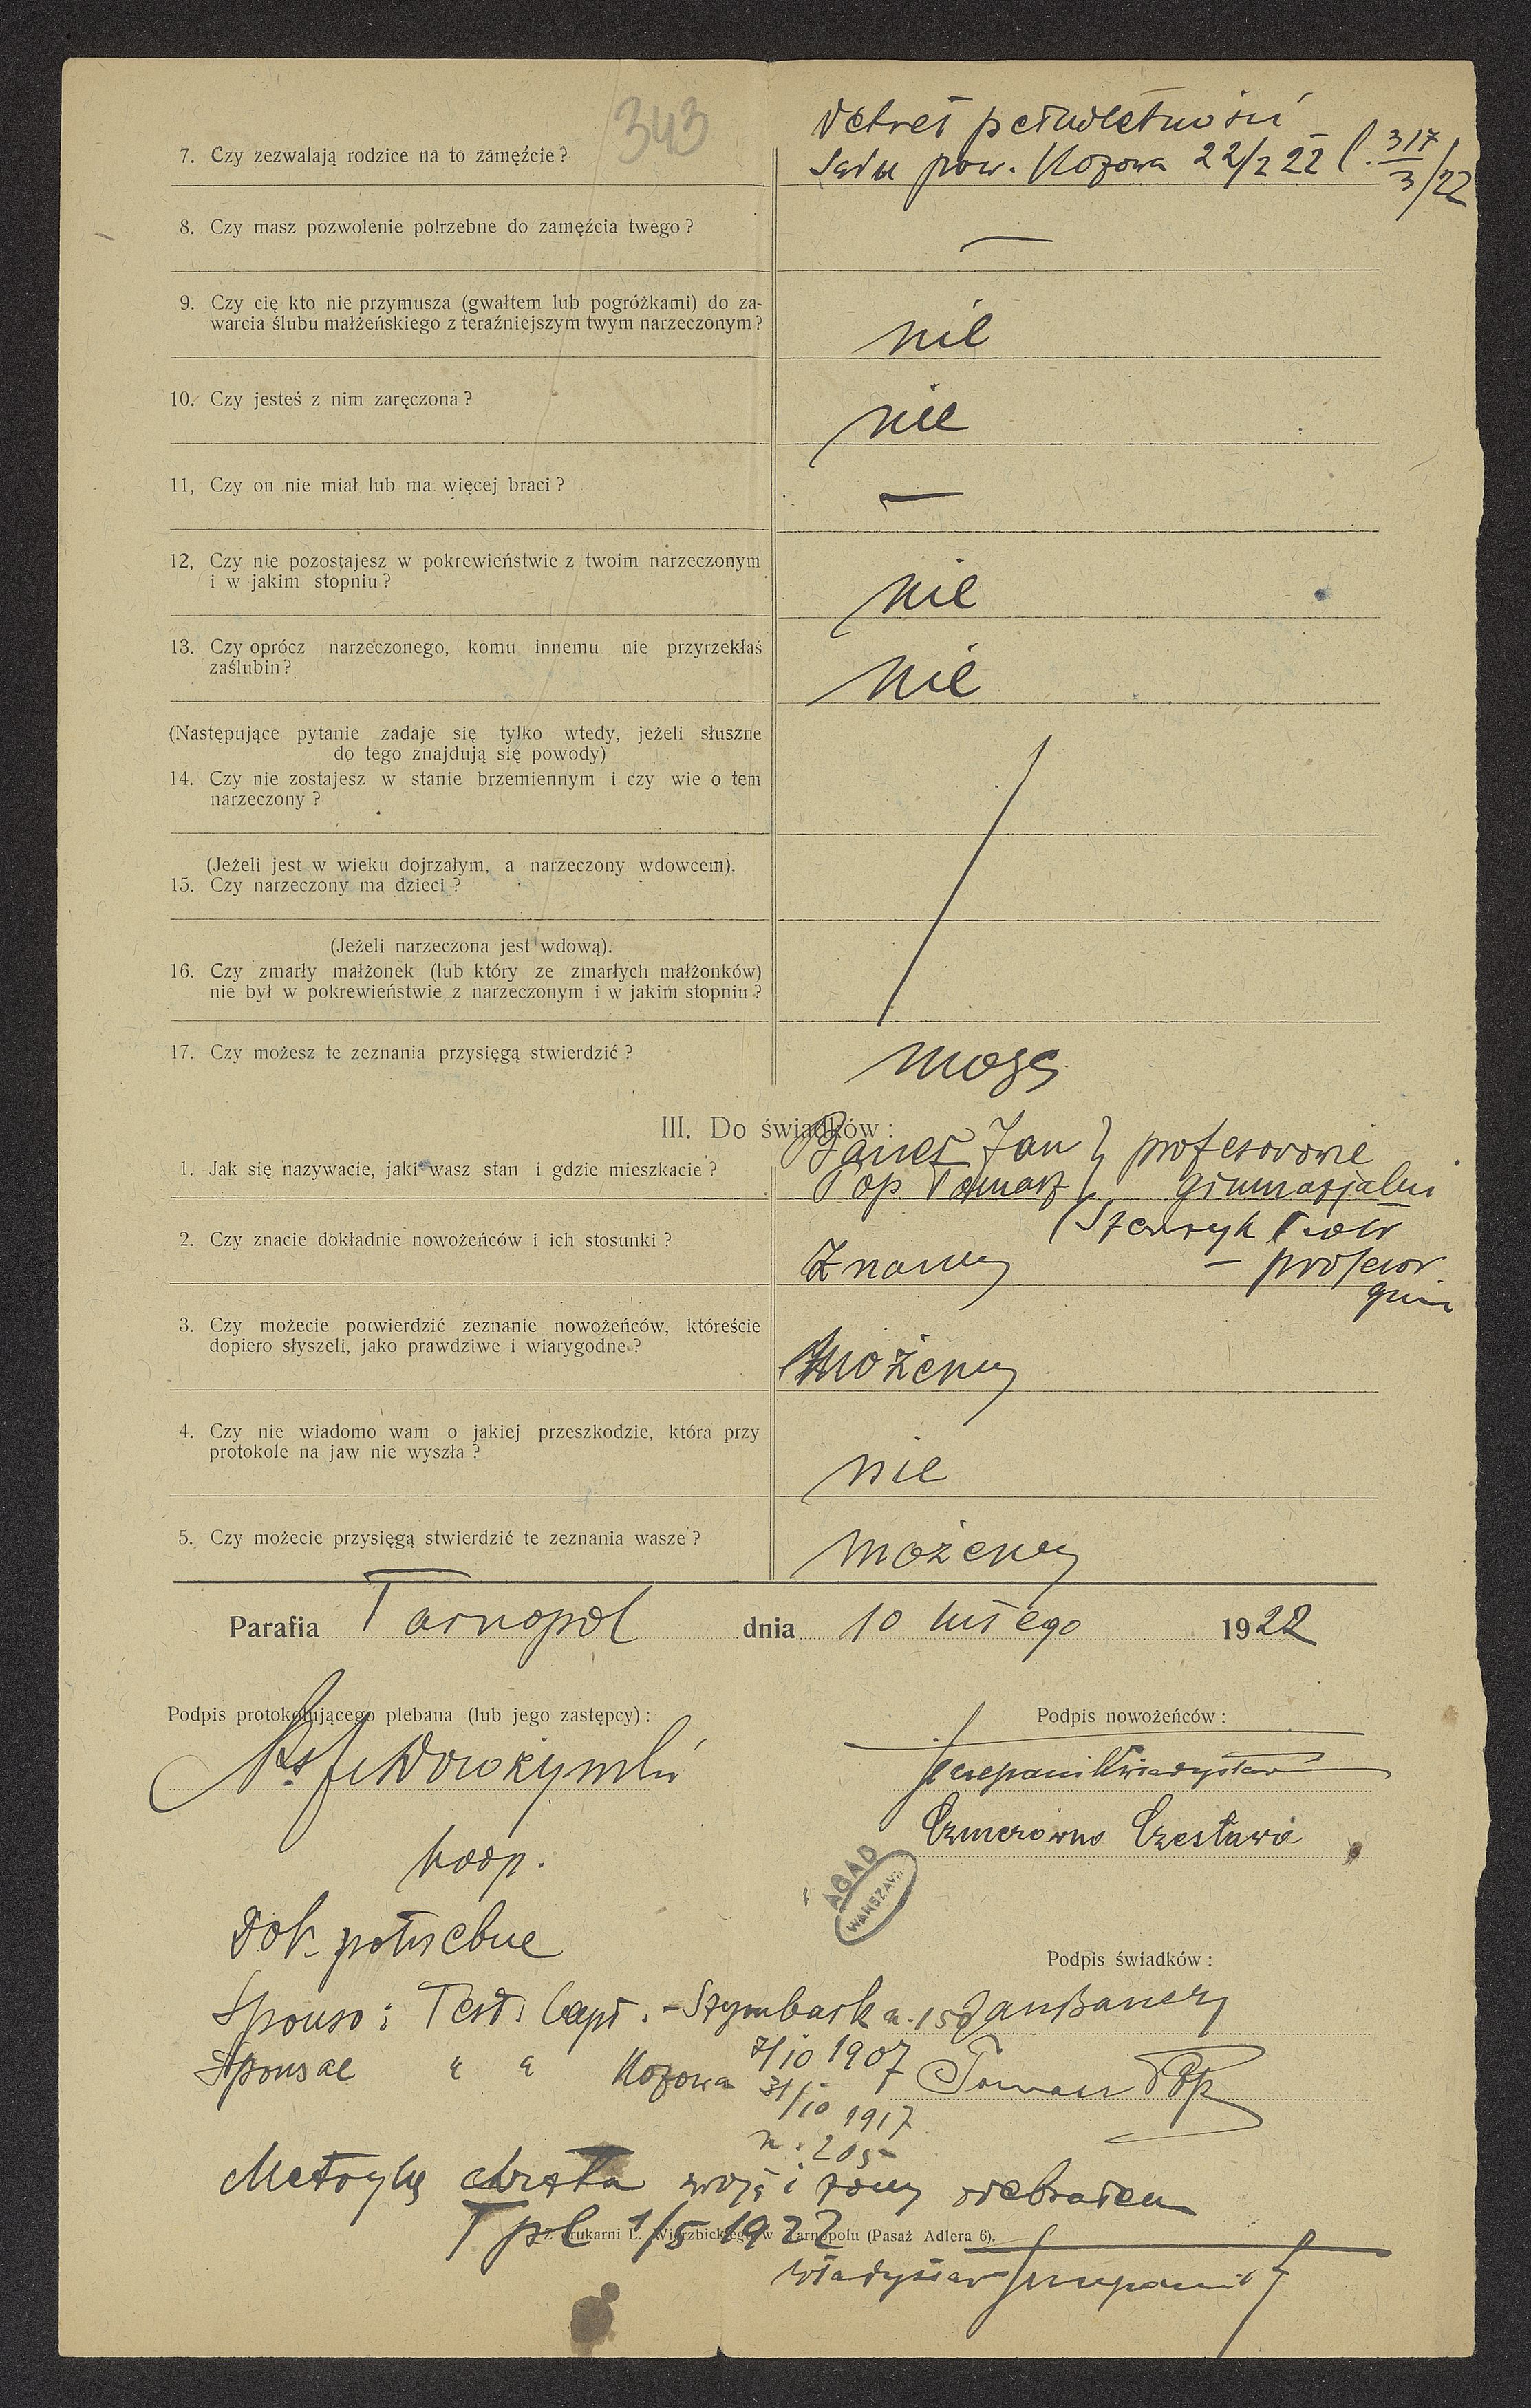 343
7. Czy zezwalają rodzice na to zamęźcie?
Dekret pełnoletności
Sądu pow. Kozowa 22/2 22 l. 317/3/22
8. Czy masz pozwolenie potrzebne do zamęźcia twego?
—
9. Czy cię kto nie przymusza (gwałtem lub pogróżkami) do za-
warcia ślubu małżeńskiego z teraźniejszym twym narzeczonym?
nie
10. Czy jesteś z nim zaręczona?
nie
11, Czy on nie miał lub ma więcej braci?
—
12, Czy nie pozostajesz w pokrewieństwie z twoim narzeczonym
i w jakim stopniu?
nie
13. Czy oprócz narzeczonego, komu innemu nie przyrzekłaś
zaślubin?
nie
(Następujące pytanie zadaje się tylko wtedy, jeżeli słuszne
do tego znajdują się powody)
14. Czy nie zostajesz w stanie brzemiennym i czy wie o tem
narzeczony?
(Jeżeli jest w wieku dojrzałym, a narzeczony wdowcem).
15. Czy narzeczony ma dzieci?
(Jeżeli narzeczona jest wdową).
16. Czy zmarły małżonek (lub który ze zmarłych małżonków)
nie był w pokrewieństwie z narzeczonym i w jakim stopniu?
17. Czy możesz te zeznania przysięgą stwierdzić?
mogę
III. Do świadków:
1. Jak się nazywacie, jaki wasz stan i gdzie mieszkacie?
Jan } profesorowie
Pop Tomasz } gimnazjalni
Piotr
2. Czy znacie dokładnie nowożeńców i ich stosunki?
Znamy
— profesor
gim
3. Czy możecie potwierdzić zeznanie nowożeńców, któreście
dopiero słyszeli, jako prawdziwe i wiarygodne?
możemy
4. Czy nie wiadomo wam o jakiej przeszkodzie, która przy
protokole na jaw nie wyszła?
nie
5. Czy możecie przysięgą stwierdzić te zeznania wasze?
możemy
Parafia Tarnopol dnia 10 lutego 1922
Podpis protokołującego plebana (lub jego zastępcy):
Podpis nowożeńców:
Ks.
Władysław
Czesława
koop.
AGAD
WARSZAWA
Dok. potrzebne
Podpis świadków:
Sponso: Test. bapt. - Szymbark n. 150
Jan
7/10 1907
Sponsae " " Kozowa
31/10 1917
n. 205
Tomasz Pop
Metrykę chrztu swoją i żony odebrałem
Tpl 1/5 1922
Z drukarni L. Wierzbickiego w Tarnopolu (Pasaż Adlera 6).
Władysław